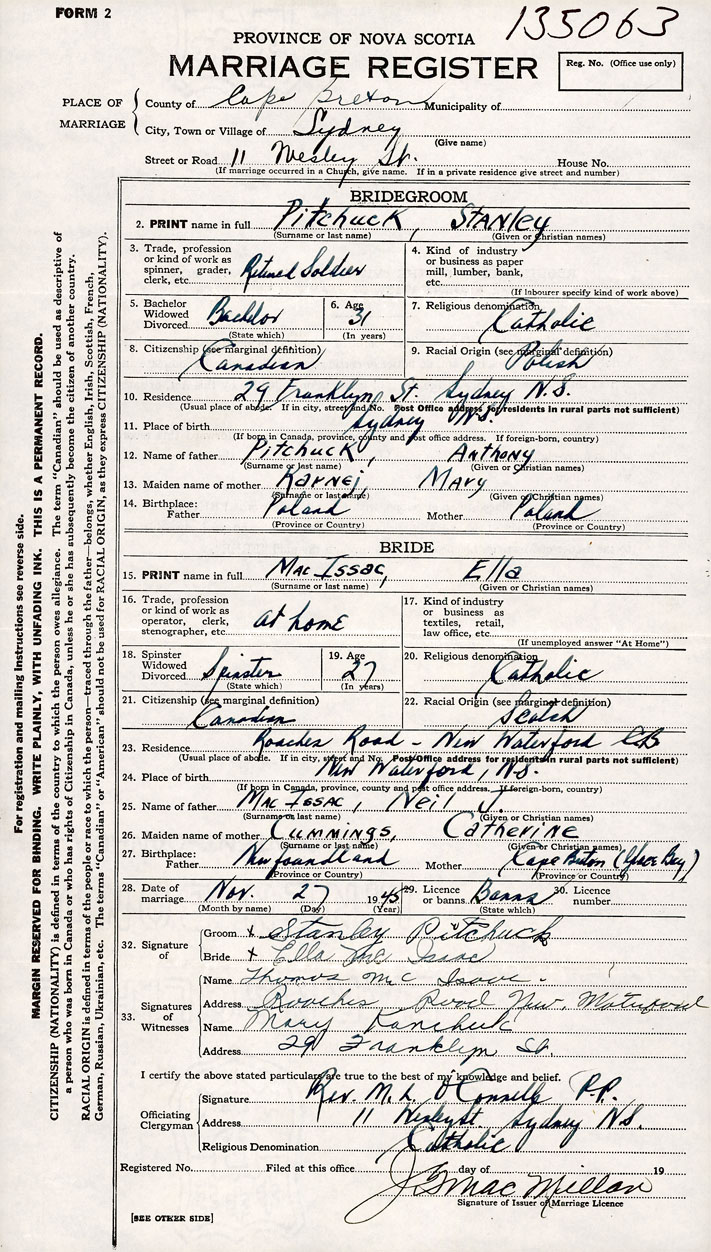 FORM 2
135063
PROVINCE OF NOVA SCOTIA
MARRIAGE REGISTER
Reg. No. (Office use only)
PLACE OF MARRIAGE
County of Cape Breton Municipality of
City, Town or Village of Sydney
(Give name)
Street or Road 11 Wesley St. House No.
(If marriage occurred in a Church, give name. If in a private residence give street and number)
BRIDEGROOM
2. PRINT name in full Pitchuck, STANLEY
(Surname or last name) (Given or Christian names)
3. Trade, profession or kind of work as spinner, grader, clerk, etc. Retired Soldier
4. Kind of industry or business as paper mill, lumber, bank, etc.
(If labourer specify kind of work above)
5. Bachelor Widowed Divorced Bachelor
(State which)
6. Age 31
(In years)
7. Religious denomination Catholic
8. Citizenship (see marginal definition) Canadian
9. Racial Origin (see marginal definition) Polish
10. Residence 29 Franklyn St. Sydney N.S.
(Usual place of abode. If in city, street and No. Post Office address for residents in rural parts not sufficient)
11. Place of birth Sydney N.S.
(If born in Canada, province, county and post office address. If foreign-born, country)
12. Name of father Pitchuck, Anthony
(Surname or last name) (Given or Christian names)
13. Maiden name of mother Mary
(Surname or last name) (Given or Christian names)
14. Birthplace: Father Poland Mother Poland
(Province or Country) (Province or Country)
BRIDE
15. PRINT name in full MacIssac, Ella
(Surname or last name) (Given or Christian names)
16. Trade, profession or kind of work as operator, clerk, stenographer, etc. at home
17. Kind of industry or business as textiles, retail, law office, etc.
(If unemployed answer "At Home")
18. Spinster Widowed Divorced Spinster
(State which)
19. Age 27
(In years)
20. Religious denomination Catholic
21. Citizenship (see marginal definition) Canadian
22. Racial Origin (see marginal definition) Scotch
23. Residence Roaches Road - New Waterford CB
(Usual place of abode. If in city, street and No. Post Office address for residents in rural parts not sufficient)
24. Place of birth New Waterford, N.S.
(If born in Canada, province, county and post office address. If foreign-born, country)
25. Name of father MacIssac, Neil J.
(Surname or last name) (Given or Christian names)
26. Maiden name of mother Cummings, Catherine
(Surname or last name) (Given or Christian names)
27. Birthplace: Father Newfoundland Mother Cape Breton (Glace Bay)
(Province or Country) (Province or Country)
28. Date of marriage Nov. 27 1945 29. Licence or banns Banns 30. Licence number
(Month by name) (Day) (Year) (State which)
32. Signature of
Groom x Stanley Pitchuck
Bride x Ella Mc Isaac
33. Signatures of Witnesses
Name Thomas Mc Isaac
Address Roaches Road New Waterford
Name Mary
Address 29 Franklyn St.
I certify the above stated particulars are true to the best of my knowledge and belief.
Officiating Clergyman
Signature Rev. M. L. O'Connell P.P.
Address 11 Wesley St. Sydney N.S.
Religious Denomination Catholic
Registered No. Filed at this office day of 19
MacMillan
Signature of Issuer of Marriage Licence
[SEE OTHER SIDE]
For registration and mailing instructions see reverse side.
MARGIN RESERVED FOR BINDING. WRITE PLAINLY, WITH UNFADING INK. THIS IS A PERMANENT RECORD.
CITIZENSHIP (NATIONALITY) is defined in terms of the country to which the person owes allegiance. The term "Canadian" should be used as descriptive of
a person who was born in Canada or who has rights of Citizenship in Canada, unless he or she has subsequently become the citizen of another country.
RACIAL ORIGIN is defined in terms of the people or race to which the person—traced through the father—belongs, whether English, Irish, Scottish, French,
German, Russian, Ukrainian, etc. The terms "Canadian" or "American" should not be used for RACIAL ORIGIN, as they express CITIZENSHIP (NATIONALITY).